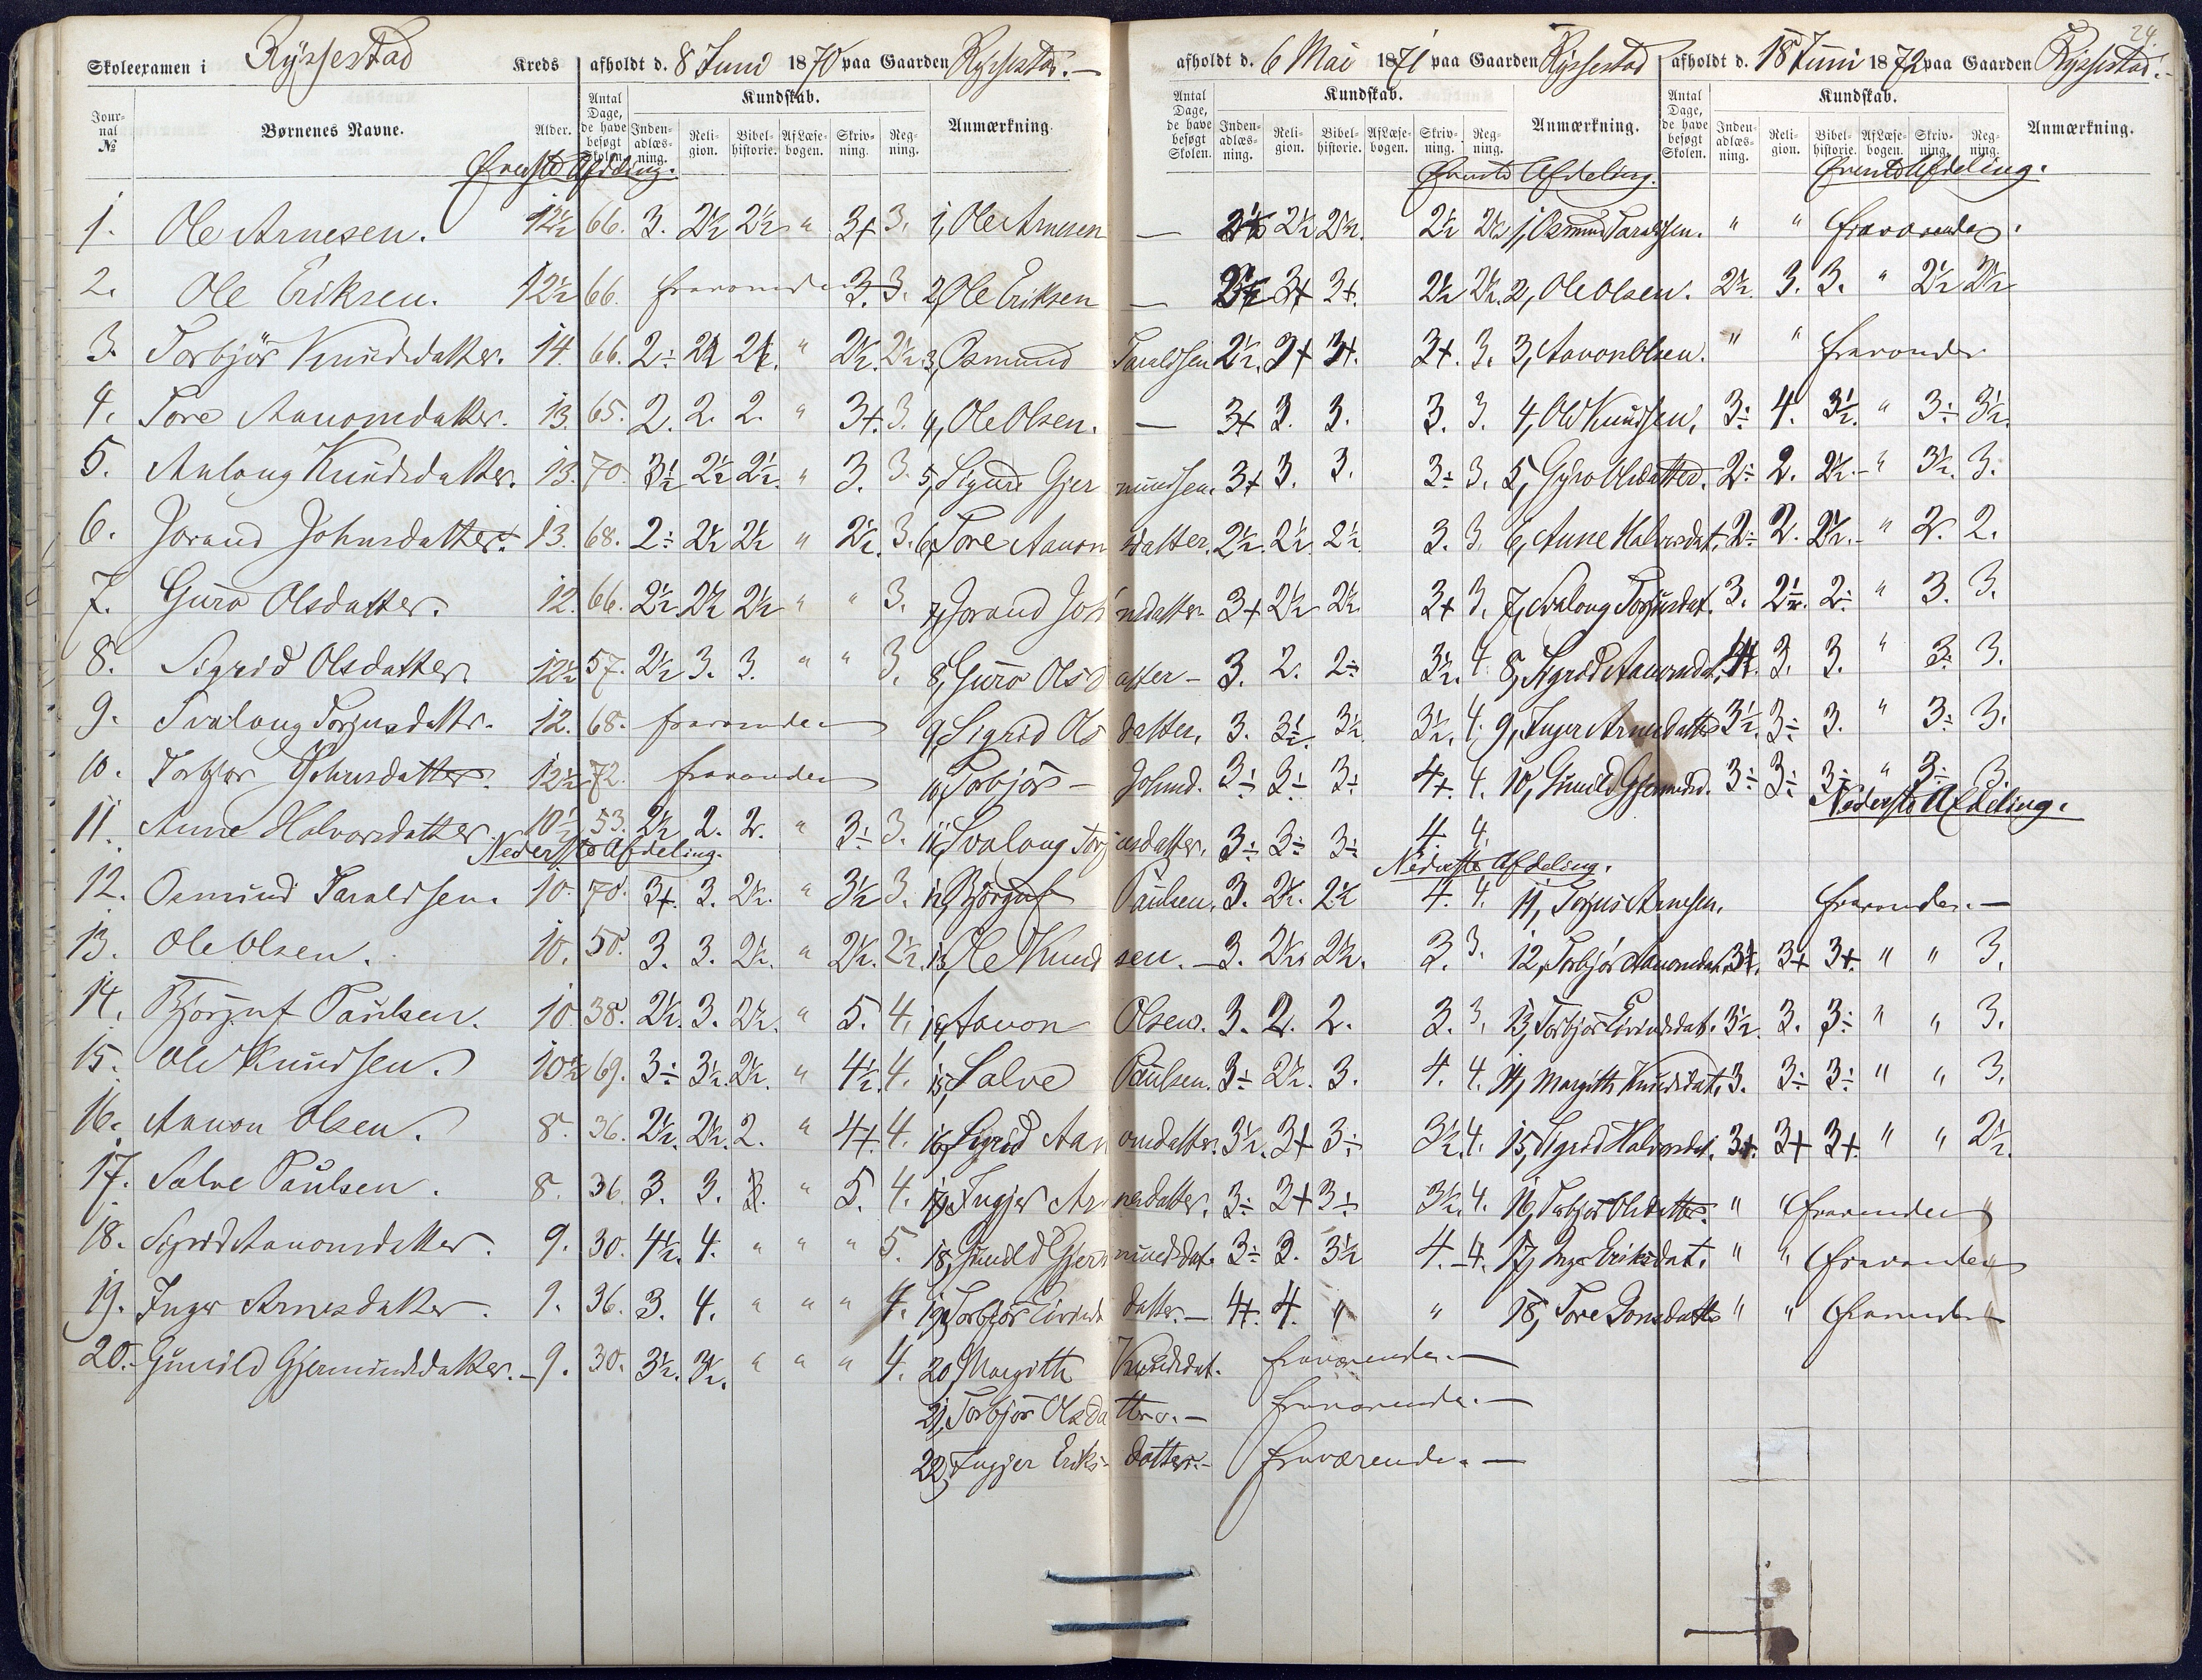 24.
Skoleexamen i Rysstad Kreds afholdt d. 8 Juni 1870 paa Gaarden Rysstad.—
Journal № Børnenes Navne. Alder. Antal Dage, de have besøgt Skolen. Kundskab. Indenadlæsning. Religion. Bibelhistorie. Af Læsebogen. Skrivning. Regning. Anmærkning.
Øverste Afdeling.
1. Ole Arnesen. 12½ 66. 3. 2½ 2½ " 3+ 3. 1, Ole Arnesen
2. Ole Eriksen. 12½ 66. 3. 3. 2, Ole Eriksen
3. Torbjör Knudsdatter. 14. 66. 2÷ 2½ 2½. " 2½. 2½ 3, Osmund
4. Tore Aanonsdatter. 13. 65. 2. 2. 2. " 3+. 3. 4, Ole Olsen.
5. Aslaug Knudsdatter. 13. 70. 3½ 2½ 2½. " 3. 3. 5, Sigurd Gjer
6. Jorand Johnsdatter. 13. 68. 2÷ 2½ 2½ " 2½. 3. 6, Tore Aanon
7. Guro Olsdatter. 12. 66. 2½ 2½ 2½ " " 3. 7, Jorand Joh
8. Sigrid Olsdatter 12½ 57. 2½ 3. 3. " " 3. 8, Guro Olsd
9. Svalaug Torjusdatter. 12. 68. fraværende 9, Sigrid Ols
10. Torbjør Johnsdatter. 12½ 72. fraværende 10, Torbjör —
11. Anne Halvorsdatter 10½ 53. 2½ 2. 2. " 3÷ 3. 11, Svalaug Torj
Nederste Afdeling.
12. Osmund Taraldsen. 10. 70. 3+. 3. 2½. " 3½ 3. 12, Bjørguf
13. Ole Olsen. 10. 50. 3. 3. 2½. " 2½. 2½. 13, Ole Knud
14. Bjørguf Paulsen. 10. 38. 2½. 3. 2½. " 5. 4. 14, Aanon
15. Ole Knudsen. 10½ 69. 3÷ 3½. 2½. " 4½. 4. 15, Salve
16. Aanon Olsen. 8. 36. 2½. 2½. 2. " 4+. 4. 16, Sigrid Aan
17. Salve Paulsen. 8. 36. 3. 3. 3. " 5. 4. 17, Ingjer Ar
18. Sigrid Aanonsdatter. 9. 30. 4½. 4. " " " 5. 18, Gunild Gjerm
19. Inger Arnesdatter. 9. 36. 3. 4. " " " 4. 19, Torbjör Eivinds
20. Gunild Gjermundsdatter. — 9. 30. 3½. 3½. " " " 4. 20, Margith
21, Torbjör Olsda
22, Ingjer Eriks-
afholdt d. 6 Mai 1871 paa Gaarden Rysstad
Antal Dage, de have besøgt Skolen. Kundskab. Indenadlæsning. Religion. Bibelhistorie. Af Læsebogen. Skrivning. Regning. Anmærkning.
Øverste Afdeling.
— 2½ 2½. 2½ 2½
— 3+ 3+. 2½ 2½.
Taraldsen 2½. 3+ 3+. 3+. 3.
— 3+ 3. 3. 3. 3.
mundsen. 3+ 3. 3. 3÷ 3.
sdatter. 2½. 2½ 2½ 3. 3.
nsdatter. 3+ 2½ 2½ 3+ 3.
atter — 3. 2. 2÷ 3½. 4.
datter. 3. 3½. 3½ 3½. 4.
Johnsd. 3÷ 3÷ 3÷ 4+. 4.
usdatter. 3÷ 3÷ 3÷ 4. 4.
Nederste Afdeling.
Paulsen. 3. 2½. 2½ 4. 4.
sen. — 3. 2½ 2½. 3. 3.
Olsen. 3. 2. 2. 3. 3.
Paulsen. 3÷ 2½. 3. 4. 4.
onsdatter. 3½. 3+ 3÷ 3½. 4.
nesdatter. 3÷ 3+ 3÷ 3½. 4.
mundsdat. 3÷ 3. 3½ 4. — 4.
datter. — 4+. 4. " "
Knudsdat. fraværende. —
tter. — fraværende. —
datter. — fraværende. —
afholdt d. 18 Juni 1872 paa Gaarden Rysstad.
Antal Dage, de have besøgt Skolen. Kundskab. Indenadlæsning. Religion. Bibelhistorie. Af Læsebogen. Skrivning. Regning. Anmærkning.
Øverste Afdeling.
1, Osmund Taraldsen. " " fraværende.
2, Ole Olsen. 2½. 3. 3. " 2½ 2½
3, Aanon Olsen. " " fraværende
4, Ole Knudsen. 3÷ 4. 3½. " 3÷ 3½.
5, Gyro Olsdatter. 2÷ 2. 2½. " 3½. 3.
6, Anne Halvorsdat. 2÷ 2. 2½. " 2. 2.
7, Svalaug Torjusdat. 3. 2½. 2÷ " 3. 3.
8, Sigrid Aanonsdat. 4+. 3. 3. " 3÷ 3.
9, Inger Arnesdatter 3½. 3÷ 3. " 3÷ 3.
10, Gunild Gjermunds. 3÷ 3÷ 3÷ " 3÷ 3.
Nederste Afdeling.
11, Torjus Arnesen. fraværende. —
12, Torbjör Aanonsdat. 3+. 3+ 3+. " " 3.
13, Torbjör Eivindsdat. 3½. 3. 3÷ " " 3.
14, Margith Knudsdat. 3. 3÷ 3÷ " " 3.
15, Sigrid Halvorsdat. 3+. 3+ 3+. " " 2½.
16, Torbjör Olsdatter. " " fraværende "
17, Inger Eriksdat. " " fraværende "
18, Tore Jonsdatter " " fraværende "